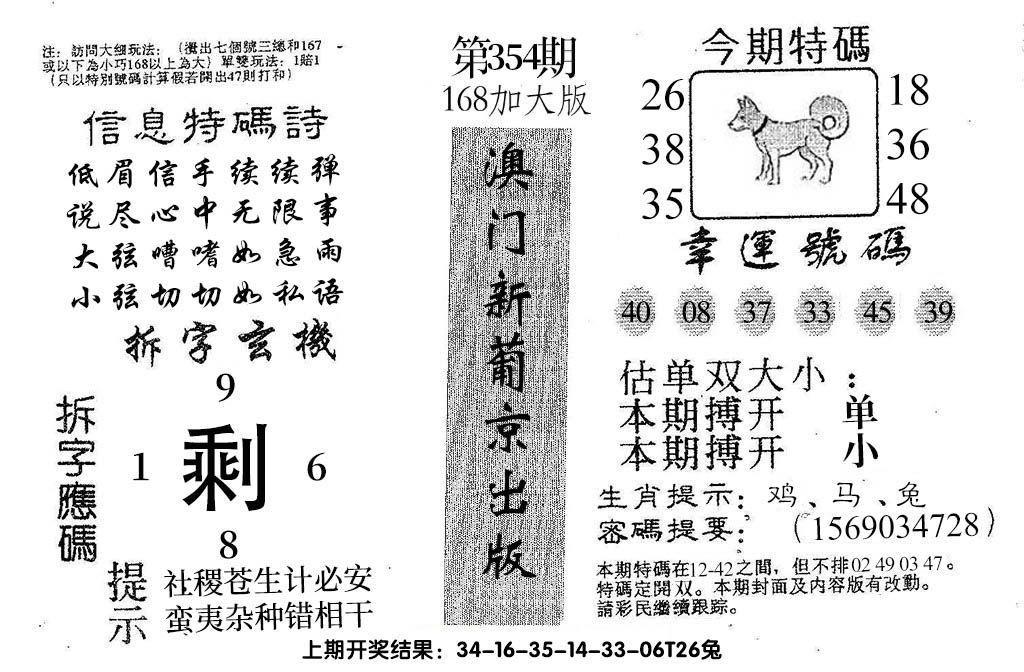 注：訪問大细玩法：（攪出七個號三總和167
或以下為小巧168以上為大）單雙玩法：1賠1
（只以特別號碼計算假若開出47則打和）
信息特碼詩
低眉信手续续弹
说尽心中无限事
大弦嘈嘈如急雨
小弦切切如私语
拆字玄機
拆字應碼
9
1 剩 6
8
提示
社稷苍生计必安
蛮夷杂种错相干
第354期
168加大版
澳门新葡京出版
今期特碼
26 18
38 36
35 48
幸運號碼
40 08 37 33 45 39
估单双大小：
本期搏开 单
本期搏开 小
生肖提示：鸡、马、兔
密碼提要：（1569034728）
本期特碼在12-42之間，但不排02 49 03 47。
特碼定開双。本期封面及内容版有改動。
請彩民繼續跟踪。
上期开奖结果：34-16-35-14-33-06T26兔